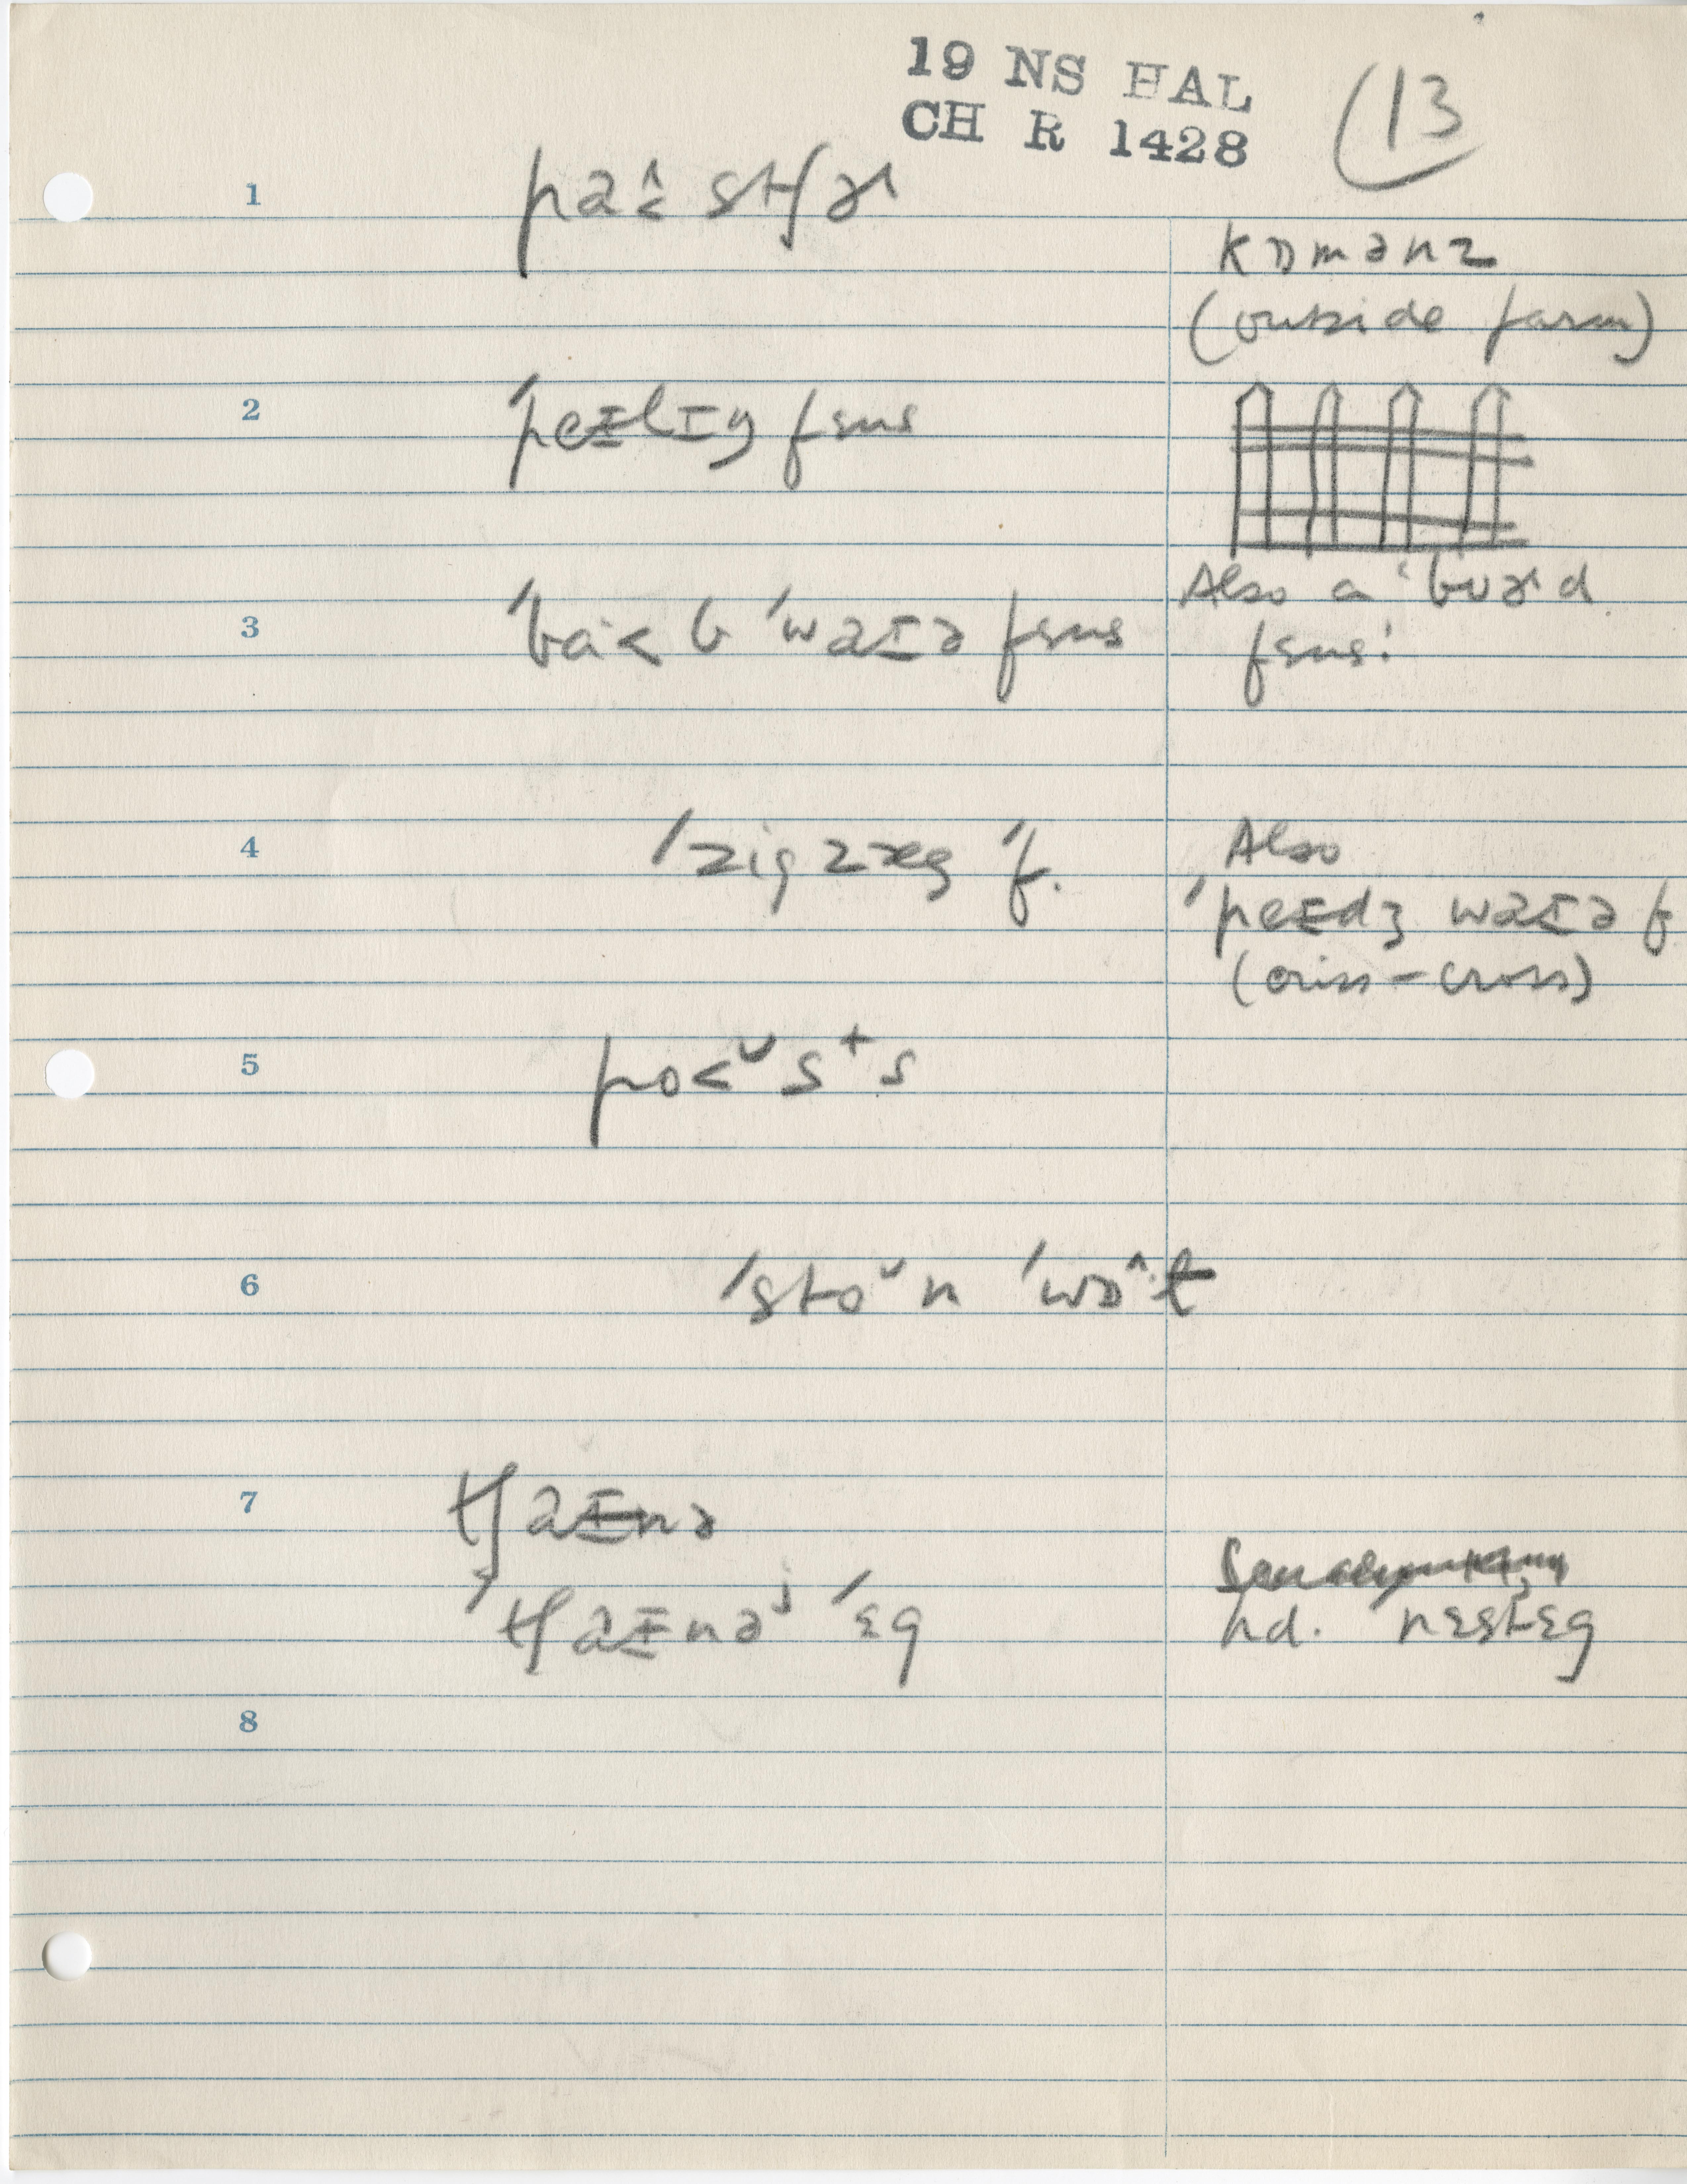 19 NS HAL
CH R 1428
(13
1 pa˄˂stʃɚ
kɒmənz
(outside farm)
2 ˈpeɪlɪŋ fɛns
3 ˈba·˂b ˈwaɪə fɛns
Also a ˈbuɚd
fɛns!
4 ˈzigzæg ˈf.
Also
ˈpeɪdʒ waɪə f
(criss-cross)
5 po˂ˇsts
6 ˈstoˇn ˈwɒ^·ɫ
7 tʃaɪnə
ˈtʃaɪnəʲ ˈɛg
hd. ˈnɛstˌɛg
8